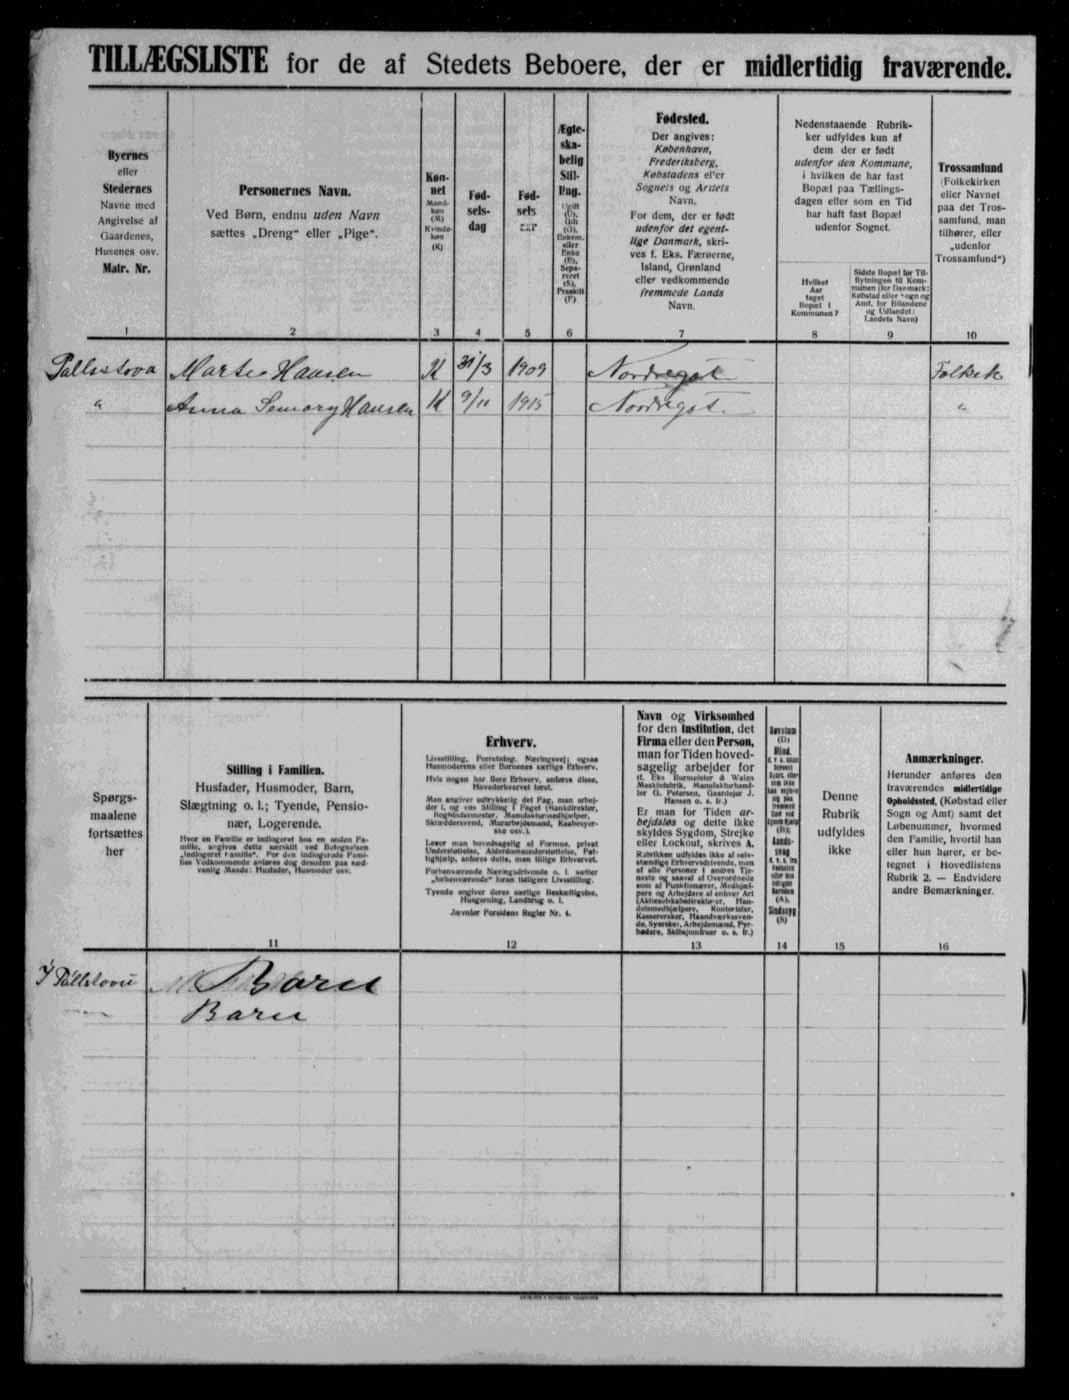 TILLÆGSLISTE for de af Stedets Beboere, der er midlertidig fraværende.
Byernes
eller
Stedernes
Navne med
Angivelse af
Gaardenes,
Husenes osv.
Matr. Nr.
1
Personernes Navn.
Ved Børn, endnu uden Navn
sættes „Dreng“ eller „Pige“.
2
Køn-
net
Mand-
køn
(M)
Kvinde-
køn
(K)
3
Fød-
sels-
dag
4
Fød-
sels
aar
5
Ægte-
ska-
belig
Stil-
ling.
Ugift
(U),
Gift
(G),
Enkem.
eller
Enke
(E),
Sepa-
reret
(S),
Fraskilt
(F)
6
Fødested.
Der angives:
København,
Frederiksberg,
Købstadens eller
Sognets og Amtets
Navn.
For dem, der er født
udenfor det egent-
lige Danmark, skri-
ves f. Eks. Færøerne,
Island, Grønland
eller vedkommende
fremmede Lands
Navn.
7
Nedenstaaende Rubrik-
ker udfyldes kun af
dem der er født
udenfor den Kommune,
i hvilken de har fast
Bopæl paa Tællings-
dagen eller som en Tid
har haft fast Bopæl
udenfor Sognet.
Hvilket
Aar
taget
Bopæl i
Kommunen?
8
Sidste Bopæl før Til-
flytningen til Kom-
munen (for Danmark:
Købstad eller Sogn og
Amt, for Bilandene
og Udlandet:
Landets Navn)
9
Trossamfund
(Folkekirken
eller Navnet
paa det Tros-
samfund, man
tilhører, eller
„udenfor
Trossamfund“)
10
Pallstova Hansen K 31/3 1909 Nordragøt Folkek
" Anna Hansen K 9/11 1915 Nordragøt. "
Spørgs-
maalene
fortsættes
her
Stilling i Familien.
Husfader, Husmoder, Barn,
Slægtning o. l.; Tyende, Pensio-
nær, Logerende.
Hvor en Familie er indlogeret hos en anden Fa-
milie, angives dette særskilt ved Betegnelsen
„indlogeret Familie“. For den indlogerede Fami-
lies Vedkommende anføres dog desuden paa sæd-
vanlig Maade: Husfader, Husmoder osv.
11
Erhverv.
Livsstilling, Forretning, Næringsvej; ogsaa
Husmoderens eller Børnenes særlige Erhverv.
Hvis nogen har flere Erhverv, anføres disse,
Hovederhvervet først.
Man angiver udtrykkelig det Fag, man arbej-
der i, og ens Stilling i Faget (Bankdirektør,
Bogbindermester, Manufakturmedhjælper,
Skræddersvend, Murarbejdsmand, Kaabesyer-
ske osv.).
Lever man hovedsagelig af Formue, privat
Understøttelse, Alderdomsunderstøttelse, Fat-
tighjælp, anføres dette, man tillige Erhvervet.
Forhenværende Næringsdrivende o. l. sætter
„forhenværende“ foran tidligere Livsstilling.
Tyende angiver deres særlige Beskæftigelse,
Husgerning, Landbrug o. l.
Jævnfør Forsidens Regler Nr. 4.
12
Navn og Virksomhed
for den Institution, det
Firma eller den Person,
man for Tiden hoved-
sagelig arbejder for
(f. Eks Burmeister & Wains
Maskinfabrik, Manufakturhand-
ler G. Petersen, Gaardejer J.
Hansen o. s. fr.)
Er man for Tiden ar-
bejdsløs og dette ikke
skyldes Sygdom, Strejke
eller Lockout, skrives A.
Rubrikken udfyldes ikke af selv-
stændige Erhvervsdrivende, men
af alle Personer i andres Tje-
neste og saavel af Overordnede
som af Funktionærer, Medhjæl-
pere og Arbejdere af enhver Art
(Aktieselskabsdirektører, Han-
delsmedhjælpere, Kontorister,
Kasserersker, Haandværkssven-
de, Syersker, Arbejdsmænd, Fyr-
bødere, Skibsjomfruer o. s. fr.)
13
Døvstum
(D)
Blind,
14
Denne
Rubrik
udfyldes
ikke
15
Anmærkninger.
Herunder anføres den
fraværendes midlertidige
Opholdssted, (Købstad eller
Sogn og Amt) samt det
Løbenummer, hvormed
den Familie, hvortil han
eller hun hører, er be-
tegnet i Hovedlistens
Rubrik 2. — Endvidere
andre Bemærkninger.
16
Í Pállstovu Barn
Barn